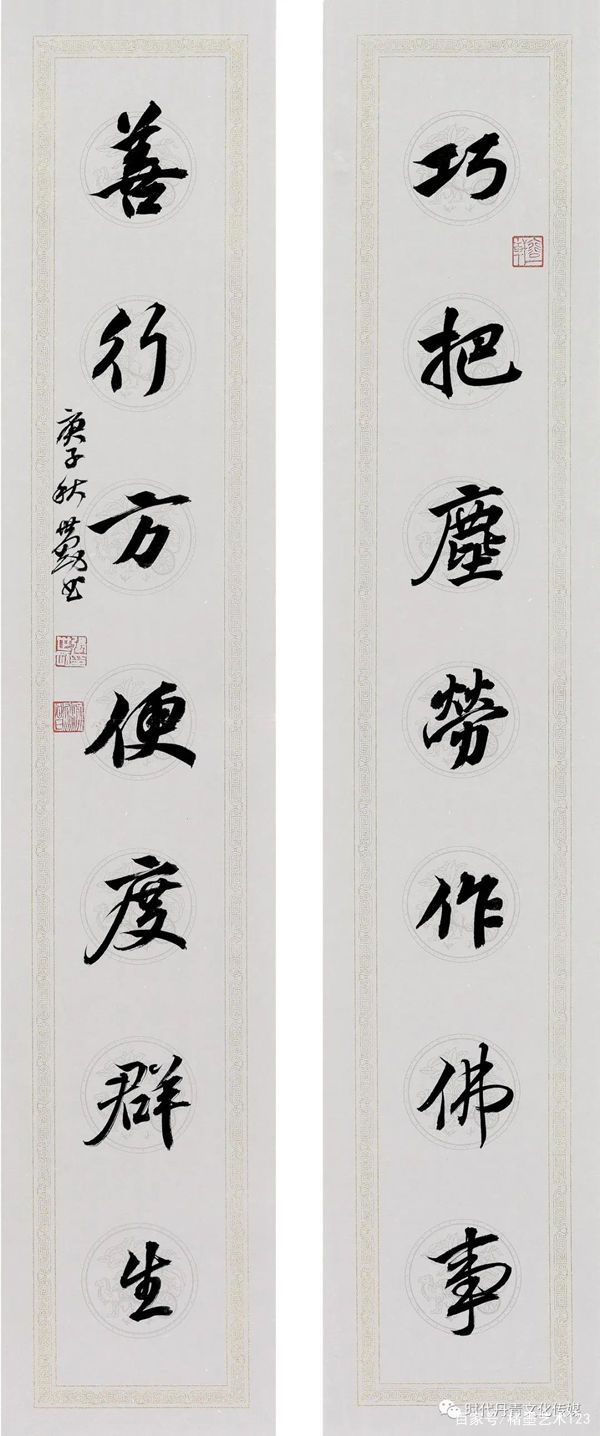 巧把塵勞作佛事
善行方便度群生
庚子秋世勋书
时代丹青文化传媒
百家号/楮墨艺术123